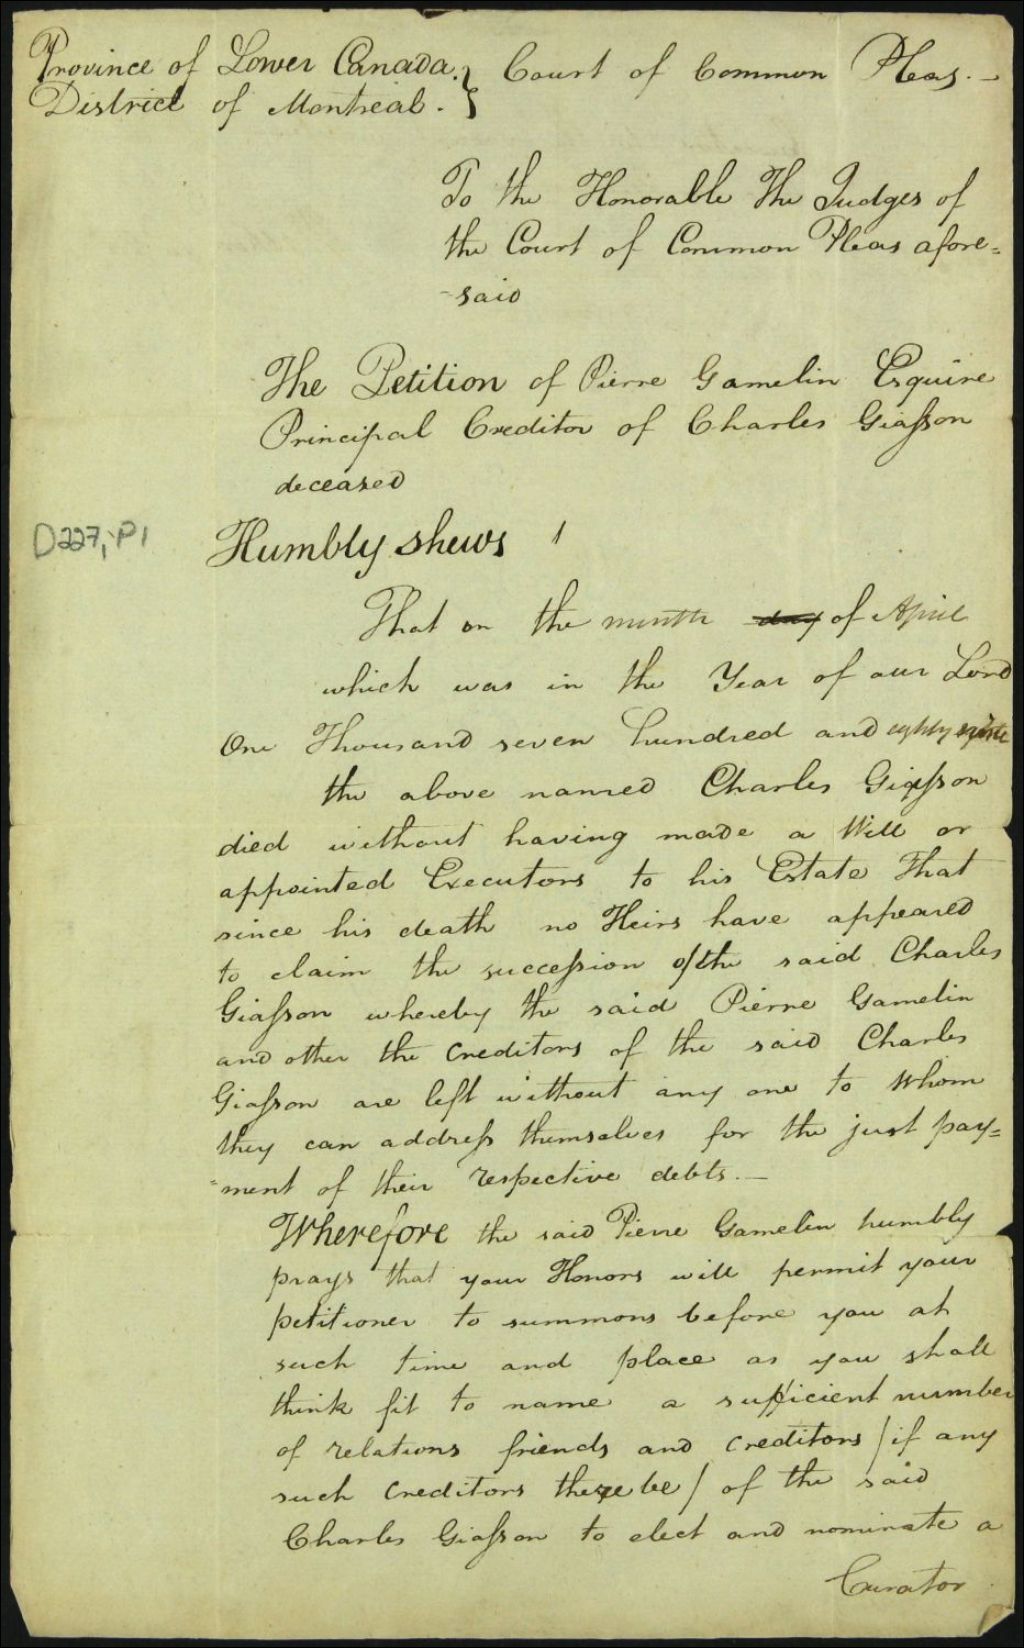 Province of Lower Canada. } Court of Common Pleas. —
District of Montreal. }
To the Honorable The Judges of
the Court of Common Pleas afore=
-said
The Petition of Pierre Gamelin Esquire
Principal Creditor of Charles Giasson
deceased
D227, P1
Humbly shews
That on the month day of April
which was in the Year of our Lord
One Thousand seven hundred and eighty
the above named Charles Giasson
died without having made a Will or
appointed Executors to his Estate That
since his death no Heirs have appeared
to claim the succession of the said Charles
Giasson whereby the said Pierre Gamelin
and other the Creditors of the said Charles
Giasson are left without any one to Whom
they can address themselves for the just pay=
=ment of their respective debts. —
Wherefore the said Pierre Gamelin humbly
prays that your Honors will permit your
petitioner to summons before you at
such time and place as you shall
think fit to name a sufficient number
of relations friends and Creditors / if any
such Creditors there be / of the said
Charles Giasson to elect and nominate a
Curator